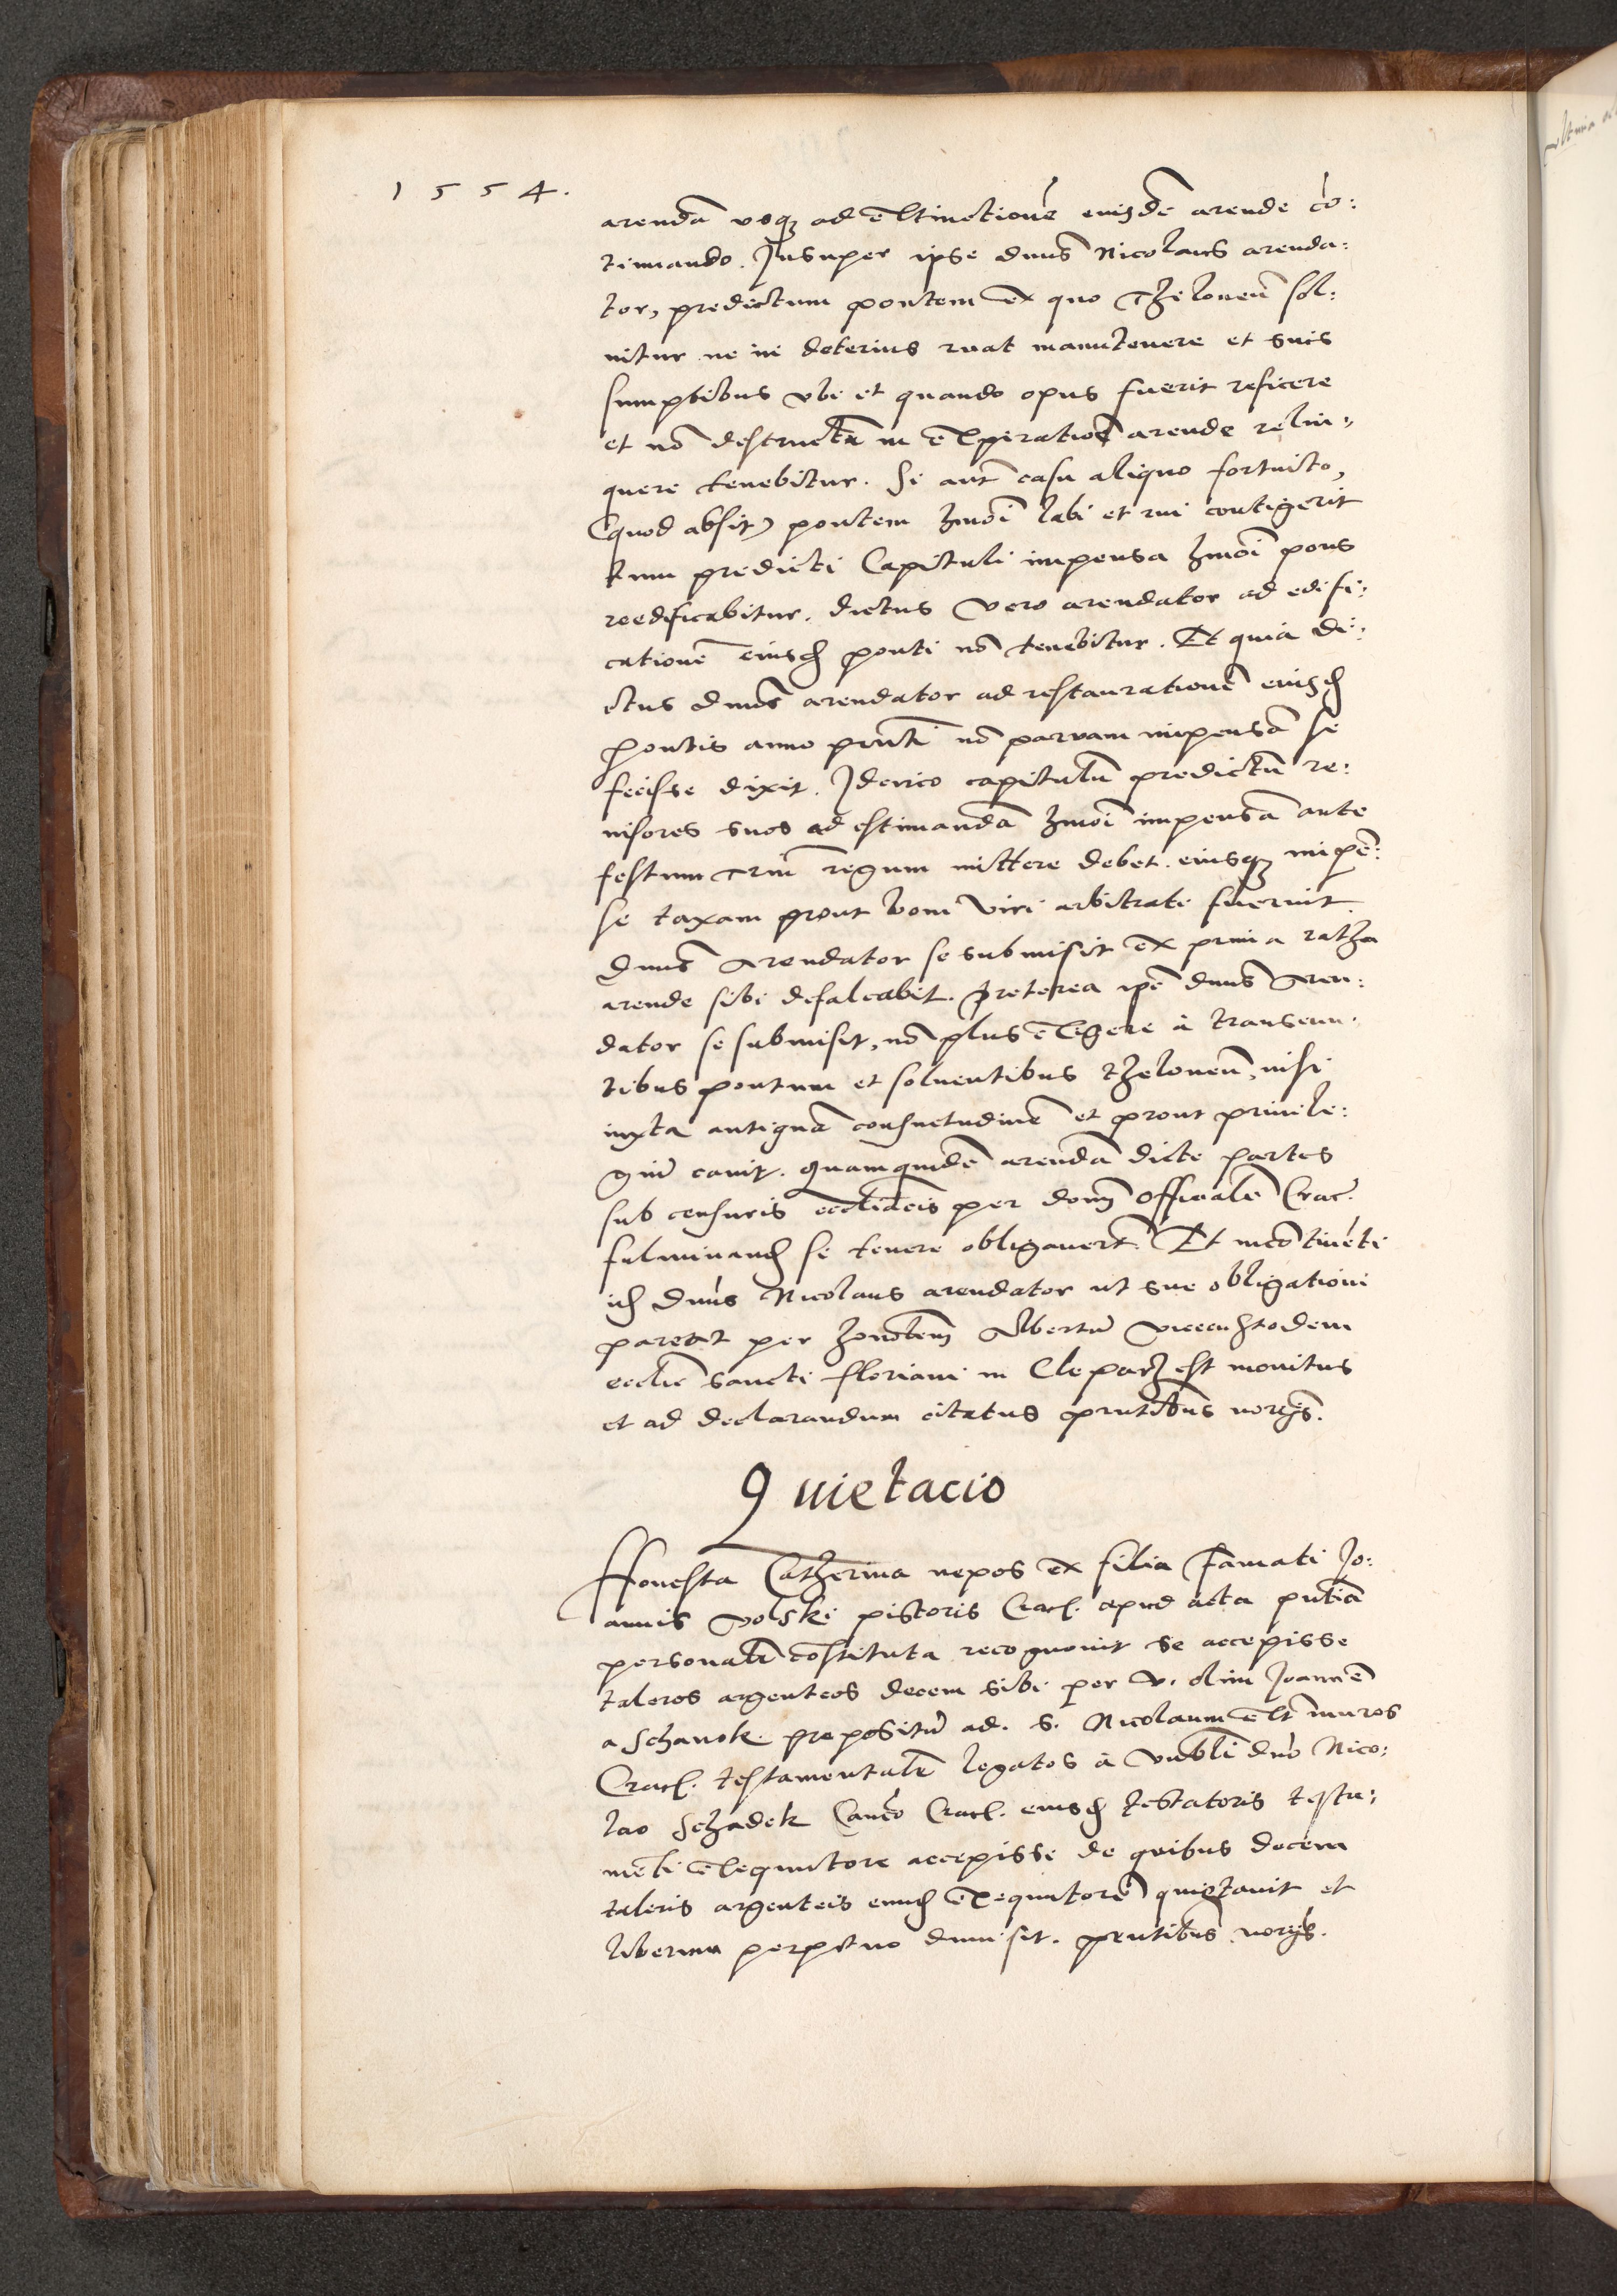 1554.
arendā vsq₃ ad extinctionē eiusdē arende cō:
tinuando. Insuper ipse dnus Nicolaus arenda:
tor, predictum pontem ex quo Theloneū sol:
uitur ne in deterius ruat manutenere et suis
sumptibus vbi et quando opus fuerit reficere
et nō destructū in expirationē arende relin:
quere tenebitur. Si aut casu aliquo fortuito,
(quod absit) pontem hmōi labi et rui contigerit
tum predicti Capituli impensa hmōi pons
reedificabitur. dictus vero arendator ad edifi:
cationē eiusd ponti nō tenebitur. Et quia di:
ctus dnus arendator ad restaurationē eiusd
pontis anno pnti nō paruam impensā se
fecisse dixit. Idcirco capitulū predictū re:
uisores suos ad estimandā hmōi impensā ante
festum Triū regum mittere debet. eiusq₃ impē:
se taxam prout boni viri arbitrati fuerint
dnus Arendator se submisit ex prima ratha
arende sibi defalcabit. Preterea ipē dnus Aren:
dator se submisit, nō plus exigere à transeun:
tibus pontem et soluentibus theloneū, nisi
iuxta antiquā consuetudinē et prout priuile:
giū canit. Quamquidē arendā dicte partes
sub censuris ecclīacis per dom Officialē Crac.
fulminand se tenere obligauert. Et incōtinēti
id dnus Nicolaus arendator ut sue obligationi
pareat per honobem Albertū vicecustodem
ecclie sancti floriani in Cleparz est monitus
et ad declarandum citatus pntibus norijs.
Quietacio
Honesta Catherina nepos ex filia famati Jo:
annis Volski pistoris Crac. apud acta pntia
personalr cōstituta recognouit se accepisse
taleros argenteos decem sibi per v. olim Joannē
a Schanok. prepositū ad. S. Nicolaum ext muros
Crac. testamentalr legatos à Vnbli dno Nico:
lao Schadek Canco Crac. eiusd testatoris testa:
mēti exequutore accepisse de quibus decem
taleris argenteis eund exequutorē quietauit et
liberum perpetuo dimisit. pntibus norijs.